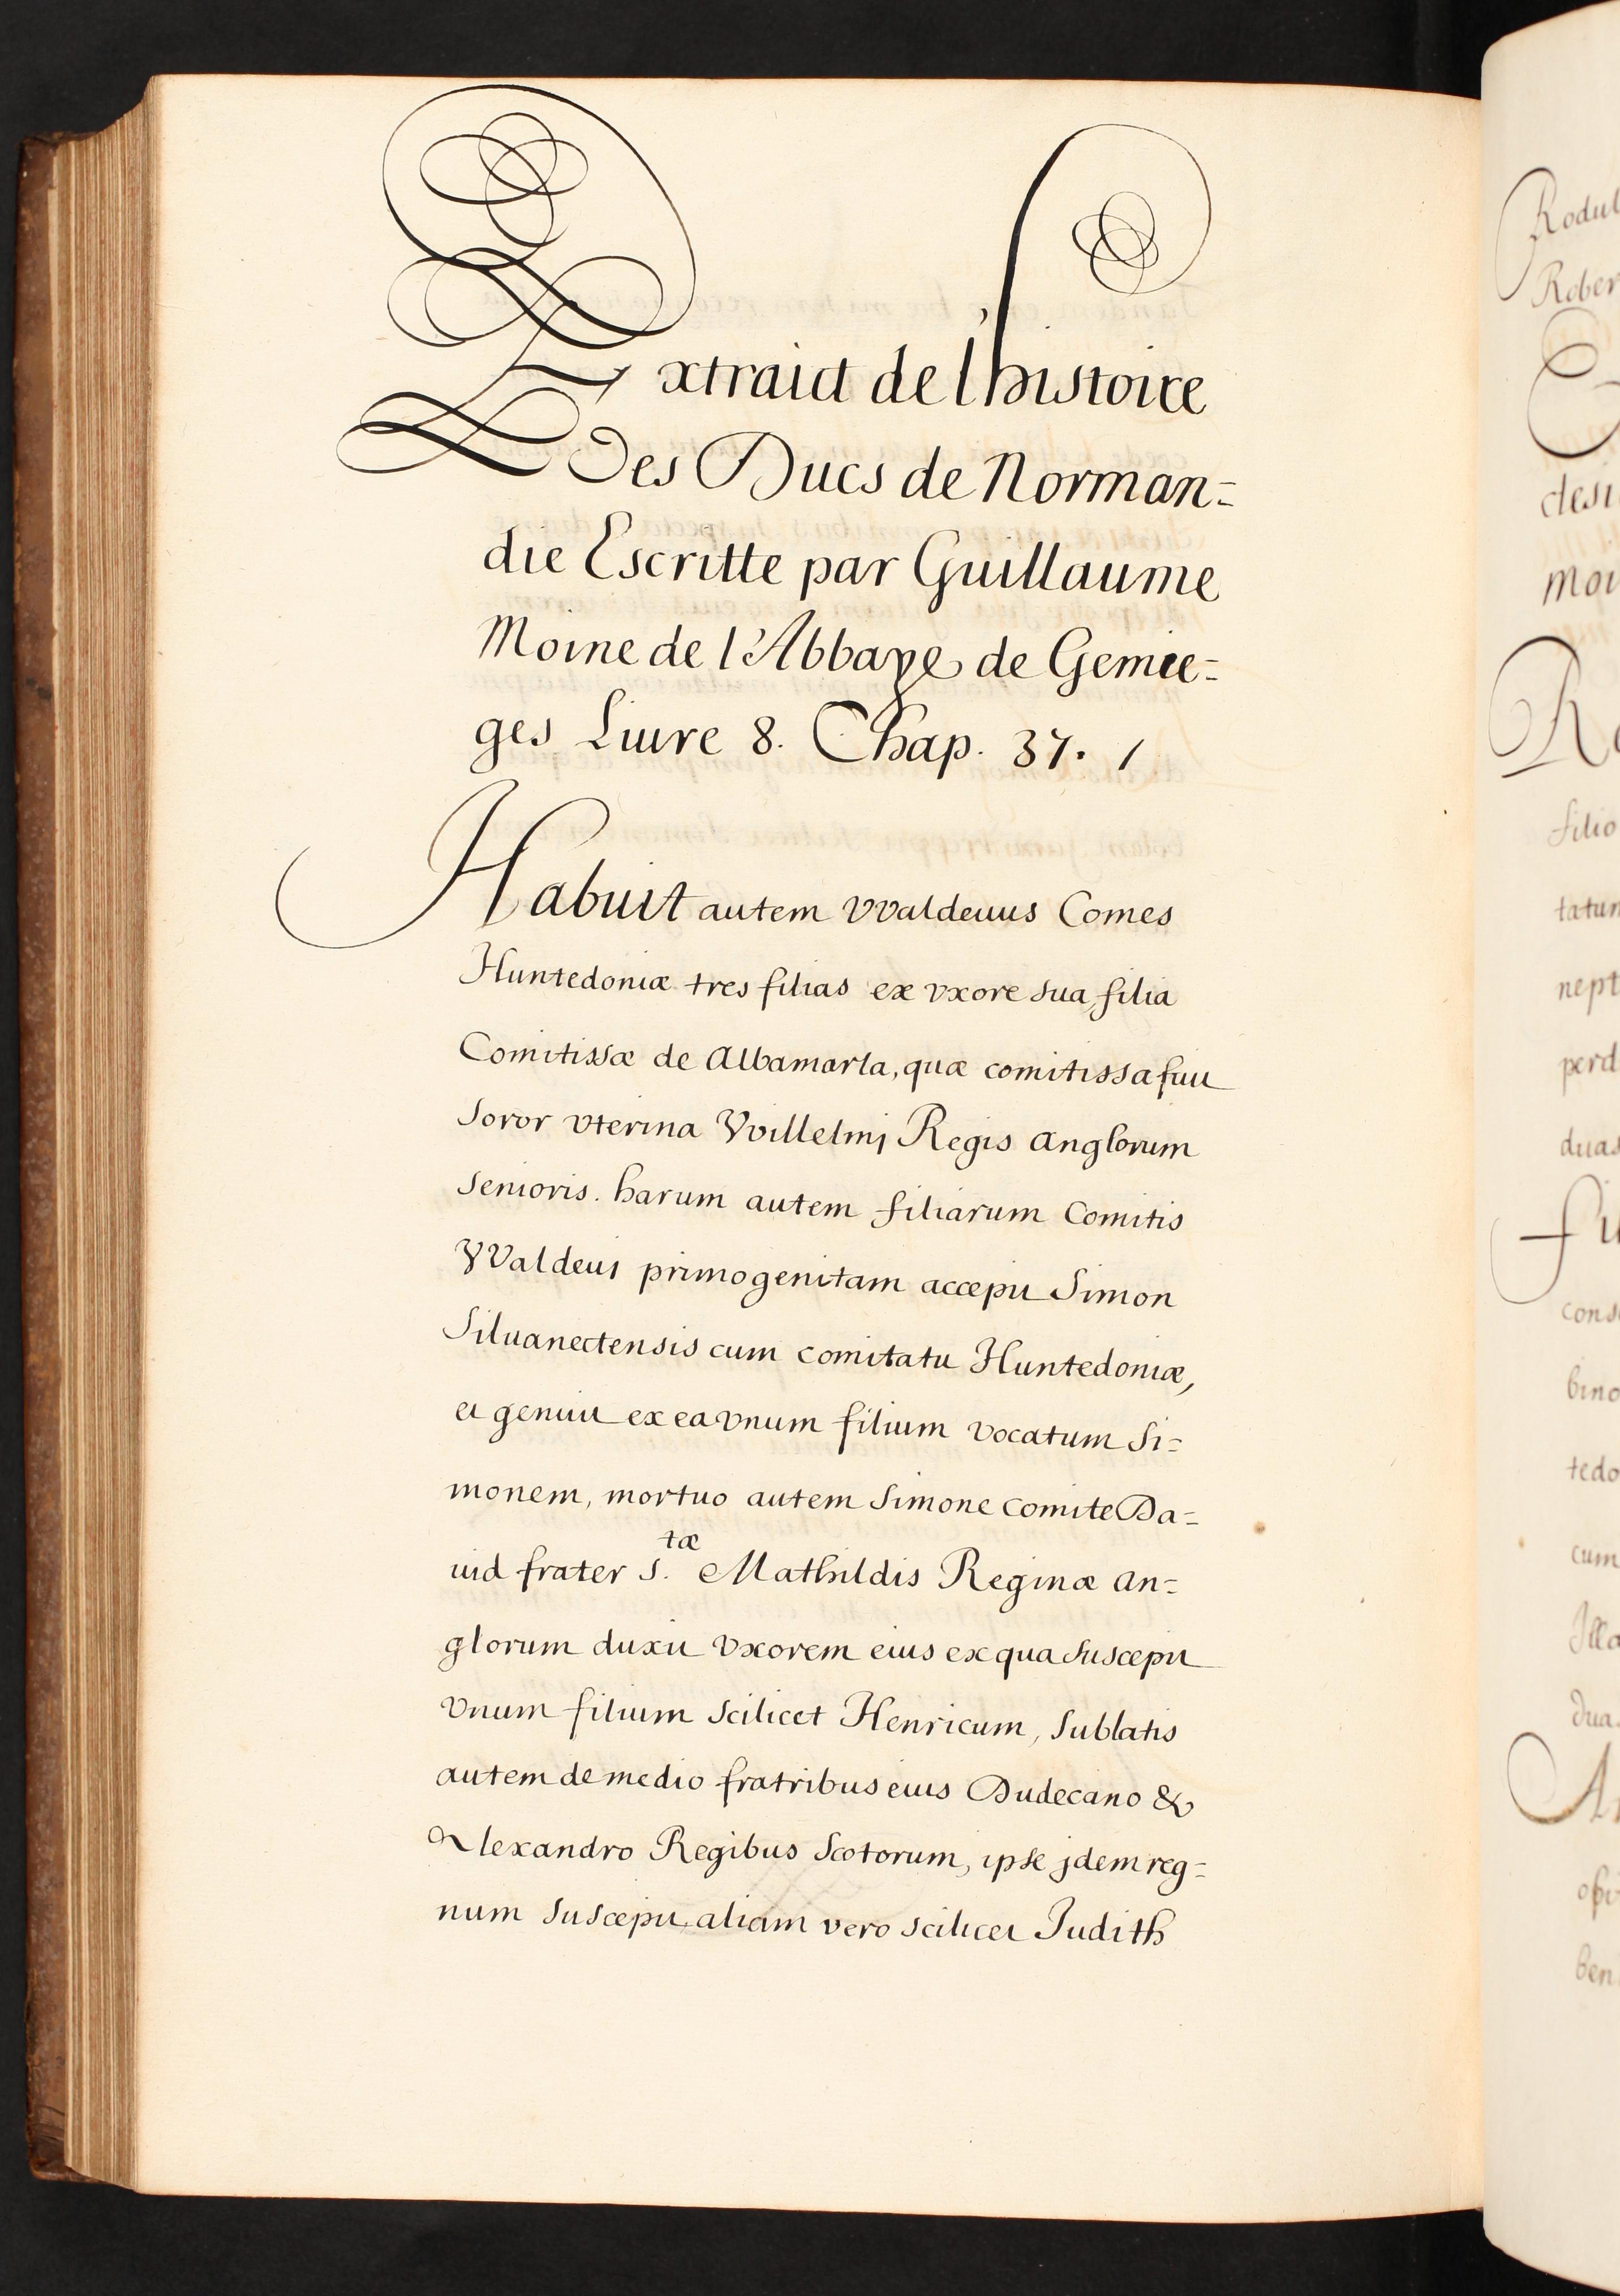 Extraict de l'histoire
Des Ducs de Norman=
die Escritte par Guillaume
Moine de l'Abbaye de Gemie=
ges Liure 8. Chap. 37. /
Habuit autem VValdeuus Comes
Huntedoniæ tres filias ex vxore sua, filia
Comitissæ de Albamarla, quæ comitissa fuit
soror vterina VVillelmj Regis Anglorum
senioris. harum autem filiarum Comitis
VValdeui primogenitam accepit Simon
Siluanectensis cum comitatu Huntedoniæ,
et genuit ex ea vnum filium vocatum Si=
monem, mortuo autem Simone Comite Da=
uid frater S.tæ Mathildis Reginæ An=
glorum duxit vxorem eius ex qua suscepit
vnum filium scilicet Henricum, sublatis
autem de medio fratribus eius Dudecano &
Alexandro Regibus Scotorum, ipse jdem reg=
num suscepit, aliam vero scilicet Judith
Rodul
Rober
desi
moi
filio
tatum
nept
perd
duas
cons
bino
tedo
cum
Illa
dua
ben